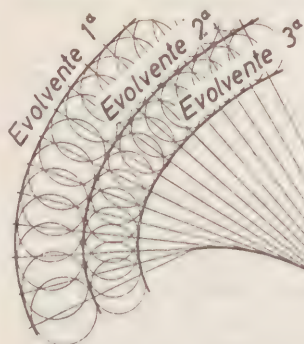 Evolvente 1ª
Evolvente 2ª
Evolvente 3ª